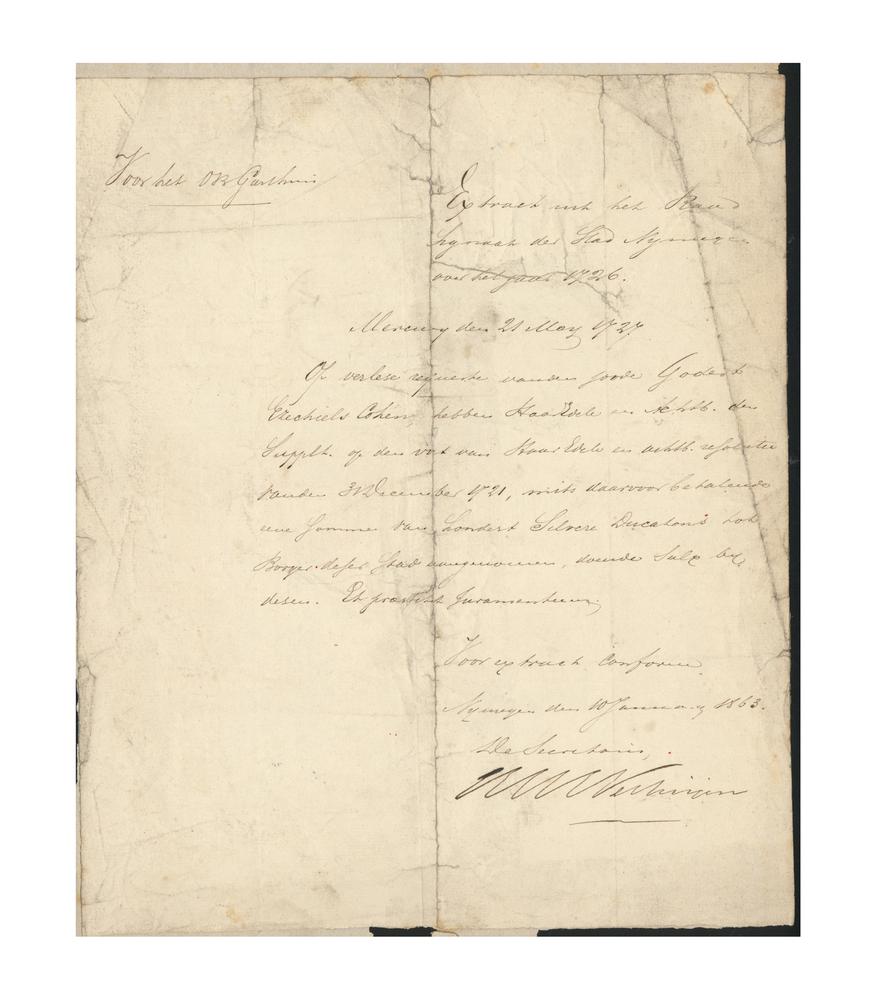 Voor het OB Gasthuis
Extract uit het Raad
signaat der Stad Nymegen
over het jaar 1726.
Mercury den 21 May 1727
Op verlese requeste van den jode Godert
Ezechiels Cohen, hebben Haar Edele en Achtb. den
Supplt. op den voet van Haar Edele en achtb. resolutie
van den 31 December 1721, mits daarvoor betalende
eene somme van hondert Silvere Ducatons tot
Borger deser Stad aangenomen, doende sulx by
desen. Et praestitit Juramentum.
Voor extract conform
Nymegen den 10 January 1863.
De Secretaris,